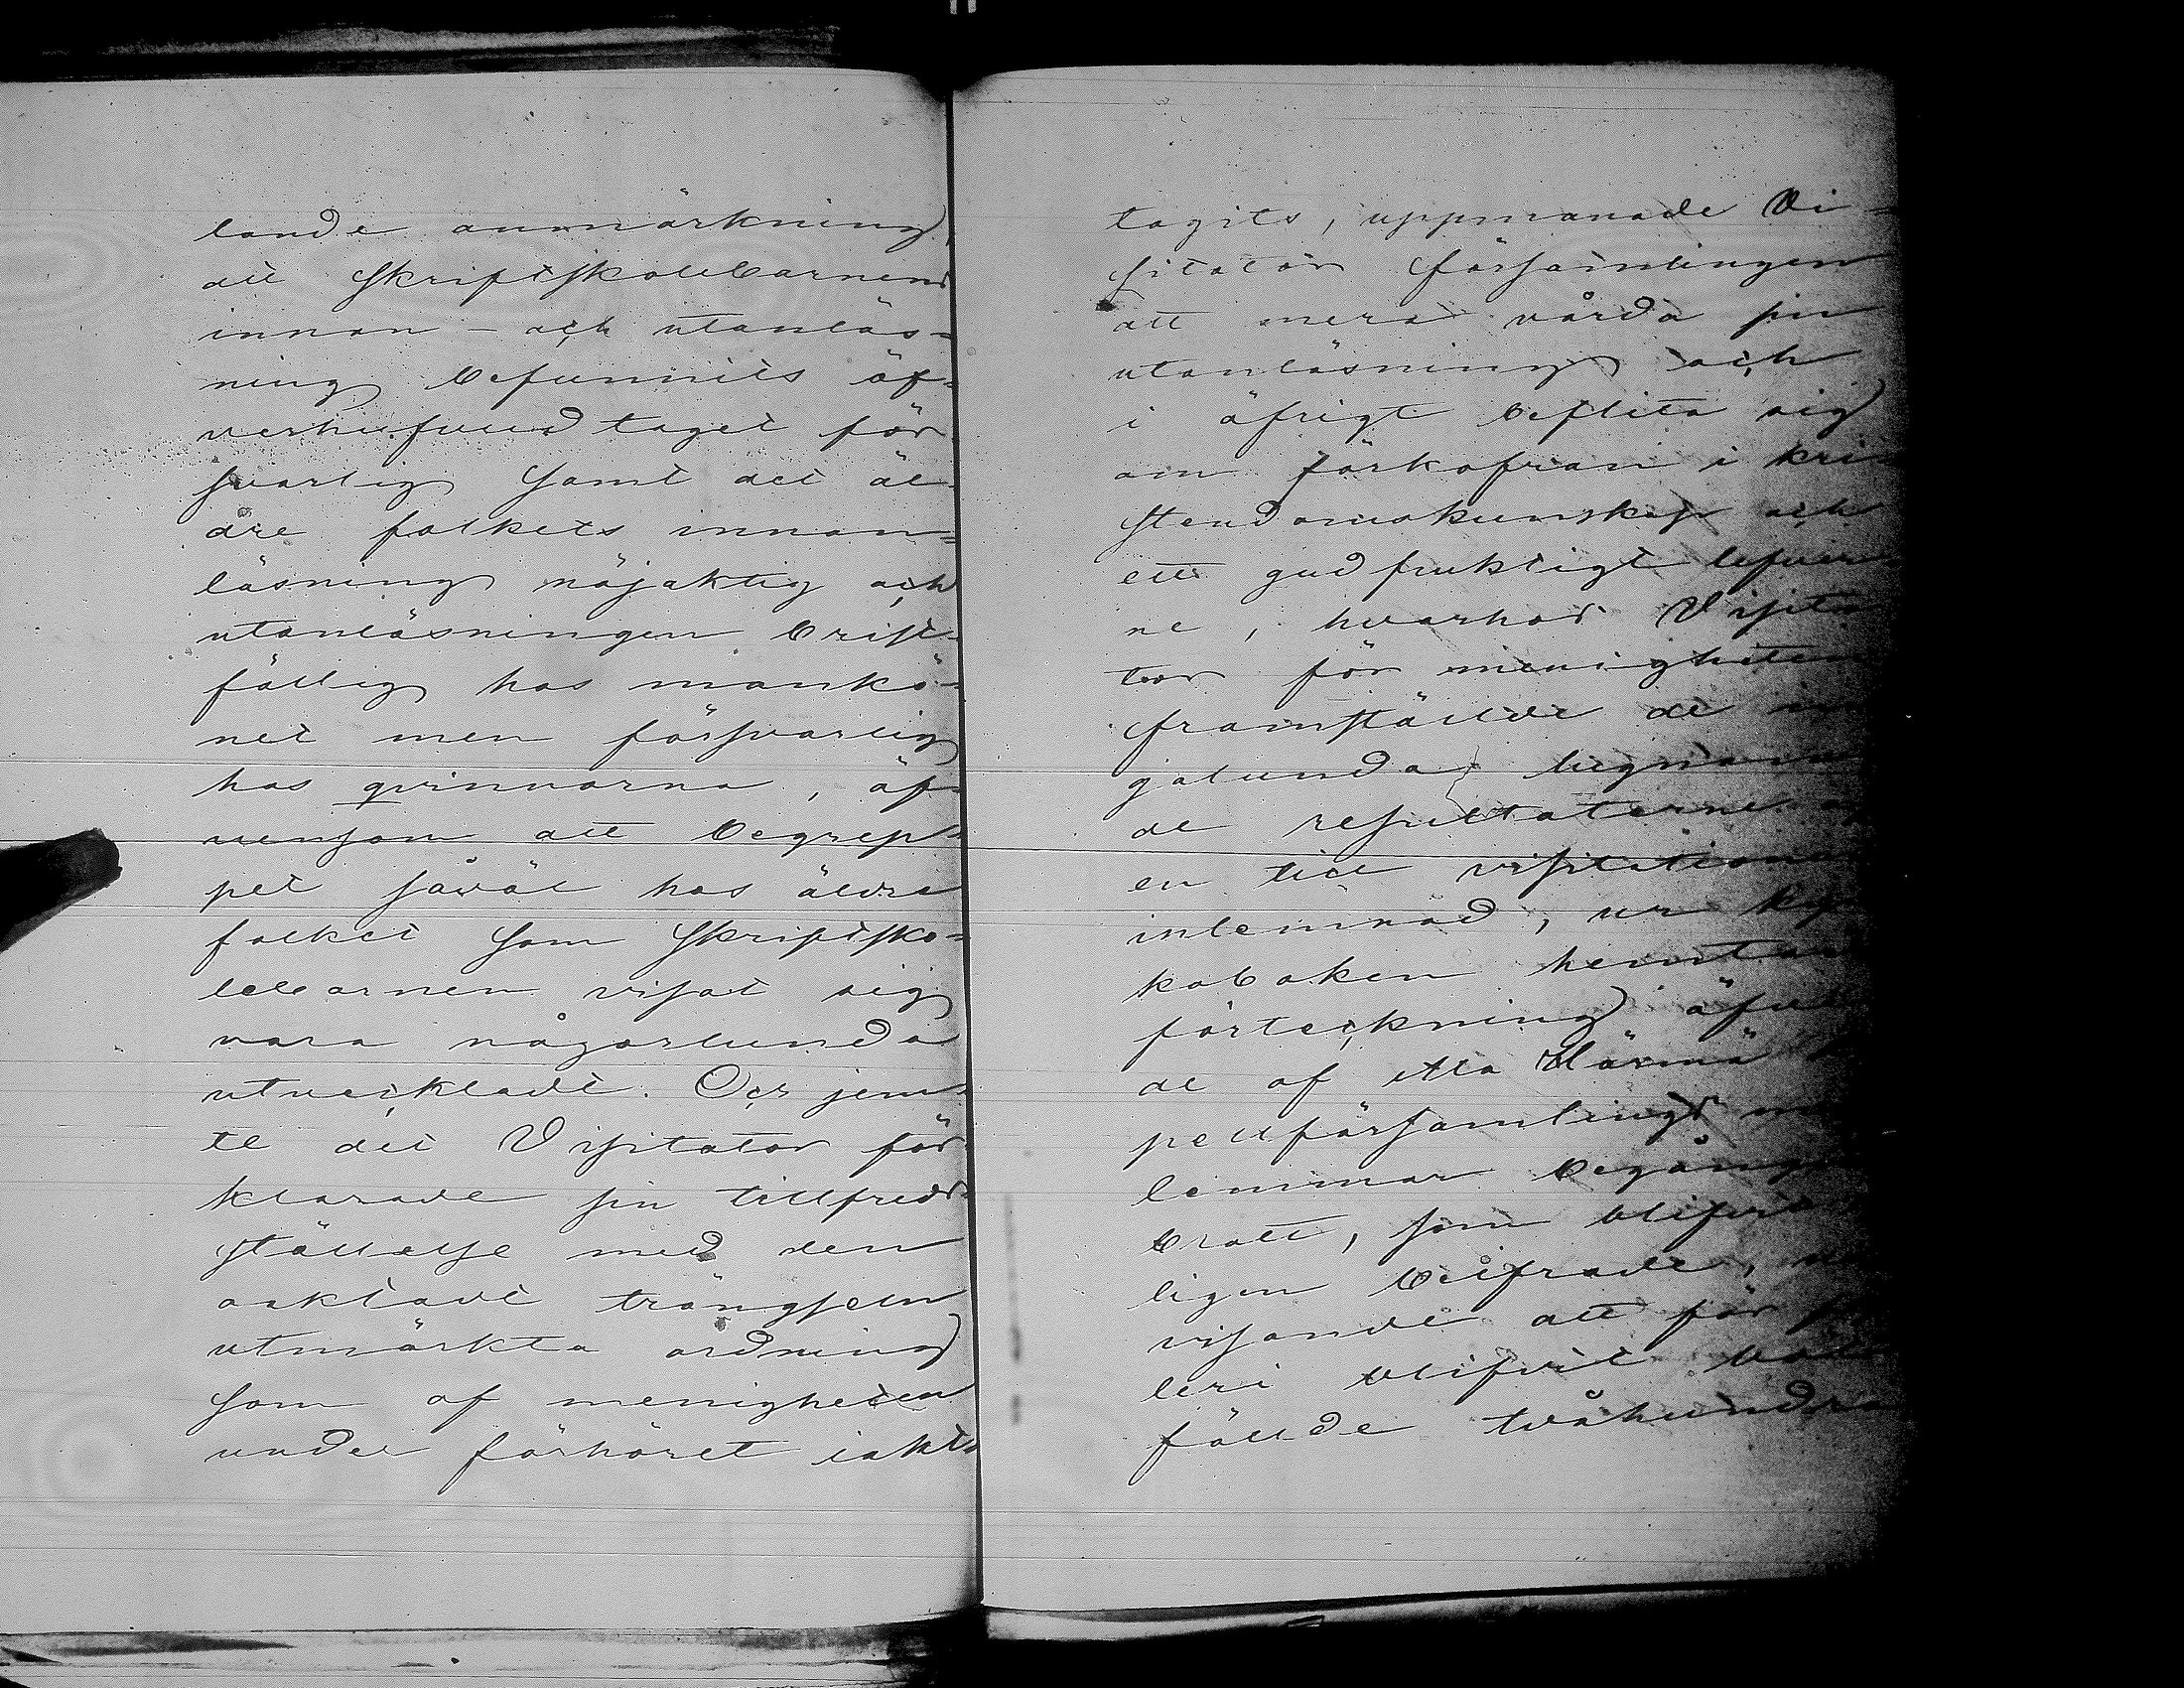 lande anmärkning,
att skriftskolebarnens
innan- och utanläs=
ning befunnits öf=
verhufvud taget för
svarlig samt det äl=
dre folkets innan=
läsning nöjaktig och
utanläsningen brist=
fällig hos mankö=
net men försvarlig
hos qvinnorna, äf=
vensom att begrep=
pet såväl hos äldre
folket som skriftsko=
lebarnen visat sig
vara någorlunda
utveckladt. Och jem=
te det Visitator för
klarade sin tillfreds=
ställelse med den
oaktadt trängseln
utmärkta ordning
som af menigheten
under förhöret iakt=
tagits, uppmanade Vi=
sitator församlingen
att mera vårda sin
utanläsning och
i öfrigt beflita sig
om förkofran i kri
stendomskunskap och
ett gudfruktigt lefver
ne, hvarhos Visita
tor för menigheten
framställde de in
galunda lugnan
de resultaterne af
en till visitationen
inlemnad, ur kyr
koboken hemtad
förteckning öfver
de af Alahärmä
pellförsamlings
lemmar begångna
brott, som blifvit
ligen beifrade,
visande att för
leri blifvit bot
fällde tvåhundra